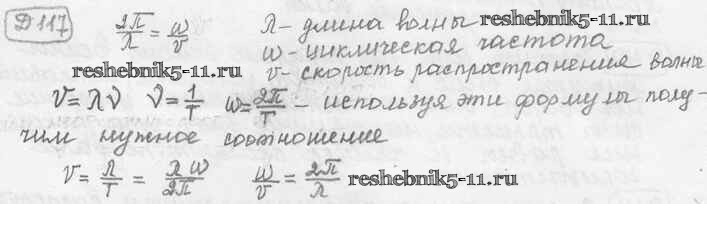 Д 117 2π/λ = ω/v λ - длина волны reshebnik5-11.ru
ω - циклическая частота
reshebnik5-11.ru v - скорость распространения волны
v = λν ν = 1/T ω = 2π/T - используя эти формулы полу-
чим нужное соотношение
v = λ/T = λω/2π ω/v = 2π/λ reshebnik5-11.ru